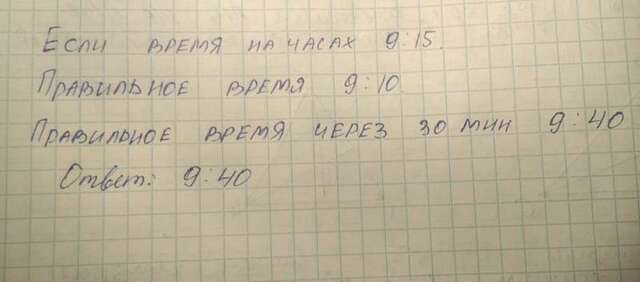 Если время на часах 9:15.
Правильное время 9:10
Правильное время через 30 мин 9:40
Ответ: 9:40